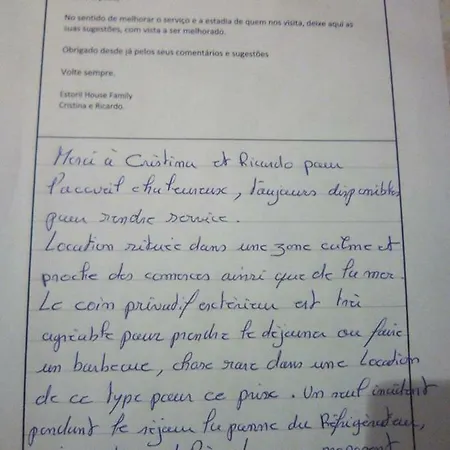 No sentido de melhorar o serviço e a estadia de quem nos visita, deixe aqui as
suas sugestões, com vista a ser melhorado.
Obrigado desde já pelos seus comentários e sugestões
Volte sempre.
Estoril House Family
Cristina e Ricardo.
Merci à Cristina et Ricardo pour
l'accueil chaleureux, toujours disponibles
pour rendre service.
Location située dans une zone calme et
proche des comerces ainsi que de la mer.
Le coin privatif extérieur est très
agréable pour prendre le déjeuner ou faire
un barbecue, chose rare dans une location
de ce type pour ce prix. Un seul incident
pendant le séjour la panne du Réfrigérateur,